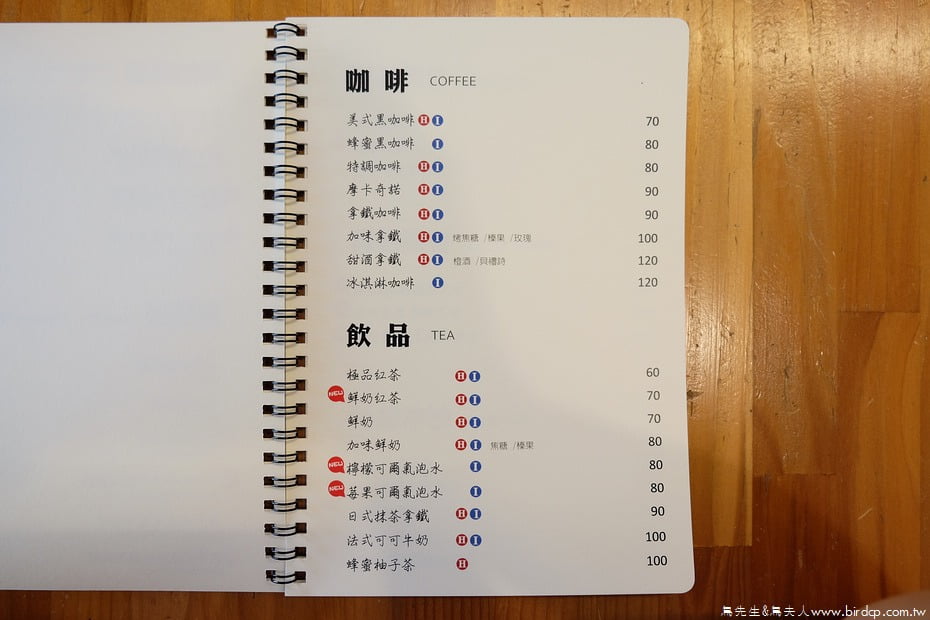 咖啡 COFFEE
美式黑咖啡 H I 70
蜂蜜黑咖啡 I 80
特調咖啡 H I 80
摩卡奇諾 H I 90
拿鐵咖啡 H I 90
加味拿鐵 H I 烤焦糖 /榛果 /玫瑰 100
甜酒拿鐵 H I 橙酒 /貝禮詩 120
冰淇淋咖啡 I 120
飲品 TEA
極品紅茶 H I 60
NEU 鮮奶紅茶 H I 70
鮮奶 H I 70
加味鮮奶 H I 焦糖 /榛果 80
NEU 檸檬可爾氣泡水 I 80
NEU 莓果可爾氣泡水 I 80
日式抹茶拿鐵 H I 90
法式可可牛奶 H I 100
蜂蜜柚子茶 H 100
鳥先生&鳥夫人www.birdcp.com.tw